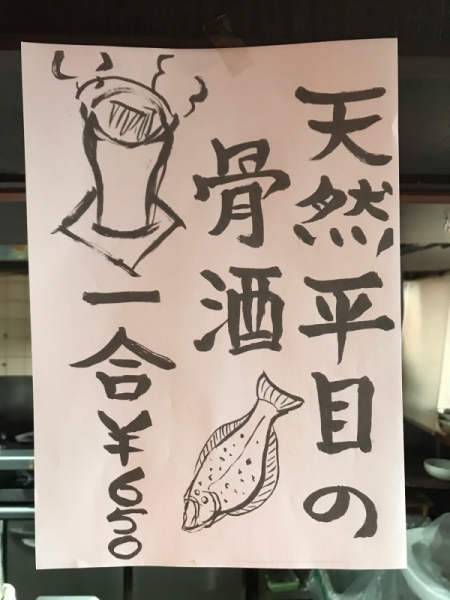 天然平目の
骨酒
一合¥650